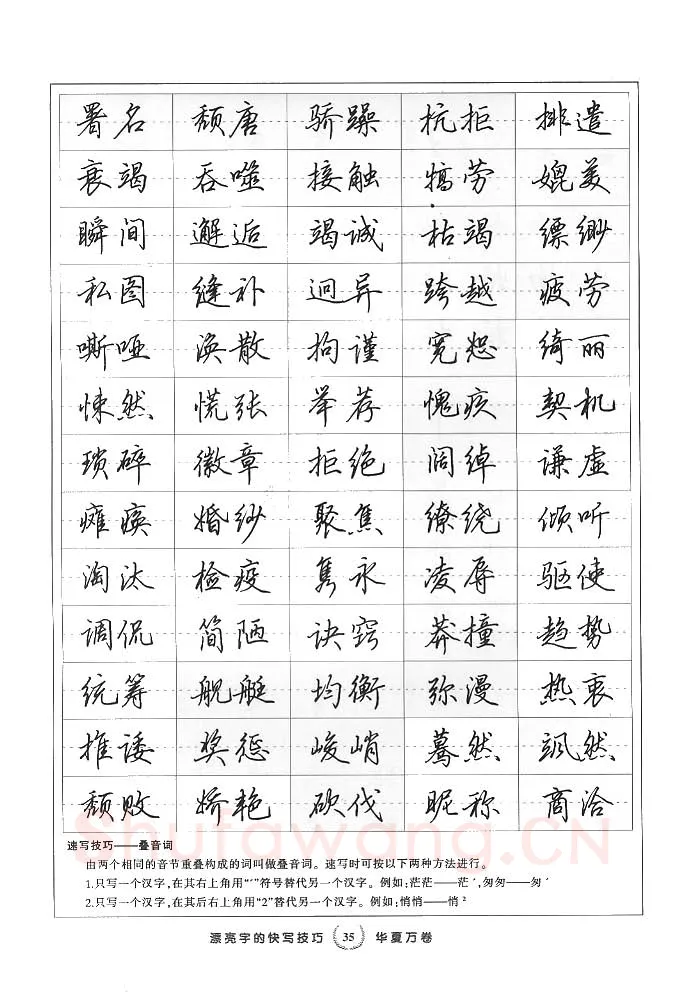 署名 颓唐 骄躁 抗拒 排遣
衰竭 吞噬 接触 犒劳 媲美
瞬间 邂逅 竭诚 枯竭 缥缈
私图 缝补 迥异 跨越 疲劳
嘶哑 涣散 拘谨 宽恕 绮丽
悚然 慌张 举荐 愧疚 契机
琐碎 徽章 拒绝 阔绰 谦虚
瘫痪 婚纱 聚焦 缭绕 倾听
淘汰 检疫 隽永 凌辱 驱使
调侃 简陋 诀窍 莽撞 趋势
统筹 舰艇 均衡 弥漫 热衷
推诿 奖惩 峻峭 蓦然 飒然
颓败 娇艳 砍伐 昵称 商洽
速写技巧——叠音词
由两个相同的音节重叠构成的词叫做叠音词。速写时可按以下两种方法进行。
1.只写一个汉字,在其右上角用“ˊ”符号替代另一个汉字。例如:茫茫——茫ˊ,匆匆——匆ˊ
2.只写一个汉字,在其后右上角用“2”替代另一个汉字。例如:悄悄——悄²
Shufawang.CN
漂亮字的快写技巧 35 华夏万卷